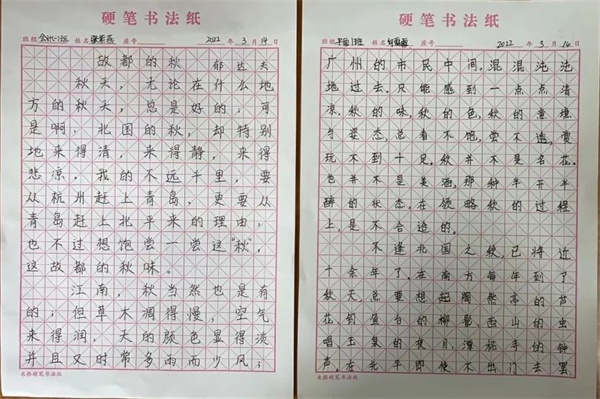 硬笔书法纸
班级 会计1班 姓名 座号 2022 年 3 月 14 日
故都的秋 郁达夫
秋天，无论在什么地
方的秋天，总是好的；可
是啊，北国的秋，却特别
地来得清，来得静，来得
悲凉。我的不远千里，要
从杭州赶上青岛，更要从
青岛赶上北平来的理由，
也不过想饱尝一尝这“秋”，
这故都的秋味。
江南，秋当然也是有
的；但草木凋得慢，空气
来得润，天的颜色显得淡
并且又时常多雨而少风；
米格硬笔书法纸
硬笔书法纸
班级 1班 姓名 座号 2022 年 3 月 14 日
广州的市民中间，混混沌沌
地过去，只能感到一点点清
凉，秋的味，秋的色，秋的意境
与姿态，总看不饱，尝不透，赏
玩不到十足。秋并不是名花，
也并不是美酒，那种半开半
醉的状态，在领略秋的过程
上，是不合适的。
不逢北国之秋，已将近
十余年了。在南方每年到了
秋天，总要想起陶然亭的芦
花，钓鱼台的柳影，西山的虫
唱，玉泉的夜月，潭柘寺的钟
声。在北平即使不出门去罢
米格硬笔书法纸